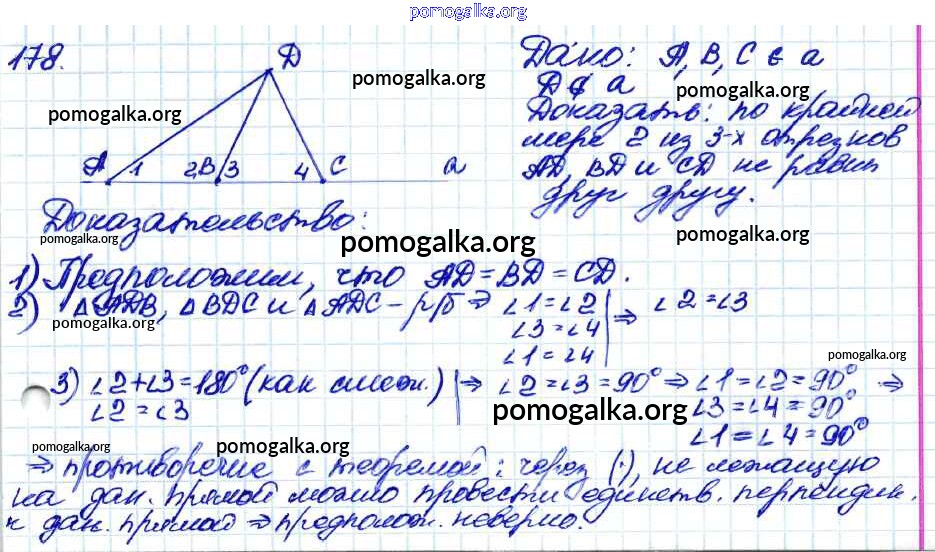 pomogalka.org
178.
D
Дано: A, B, C ∈ a
D ∉ a
pomogalka.org
pomogalka.org
pomogalka.org
Доказать: по крайней
мере 2 из 3-х отрезков
AD, BD и CD не равны
друг другу.
A 1 2 B 3 4 C a
Доказательство:
pomogalka.org
pomogalka.org
pomogalka.org
1) Предположим, что AD = BD = CD.
2) △ADB, △BDC и △ADC – р/б ⇒ ∠1 = ∠2 ⇒ ∠2 = ∠3
∠3 = ∠4
∠1 = ∠4
pomogalka.org
pomogalka.org
3) ∠2 + ∠3 = 180° (как смеж.) ⇒ ∠2 = ∠3 = 90° ⇒ ∠1 = ∠2 = 90° ⇒
∠2 = ∠3
∠3 = ∠4 = 90°
∠1 = ∠4 = 90°
pomogalka.org
pomogalka.org
pomogalka.org
⇒ противоречие с теоремой: через (·), не лежащую
на дан. прямой можно провести единств. перпендик.
к дан. прямой ⇒ предполож. неверно.
pomogalka.org
pomogalka.org